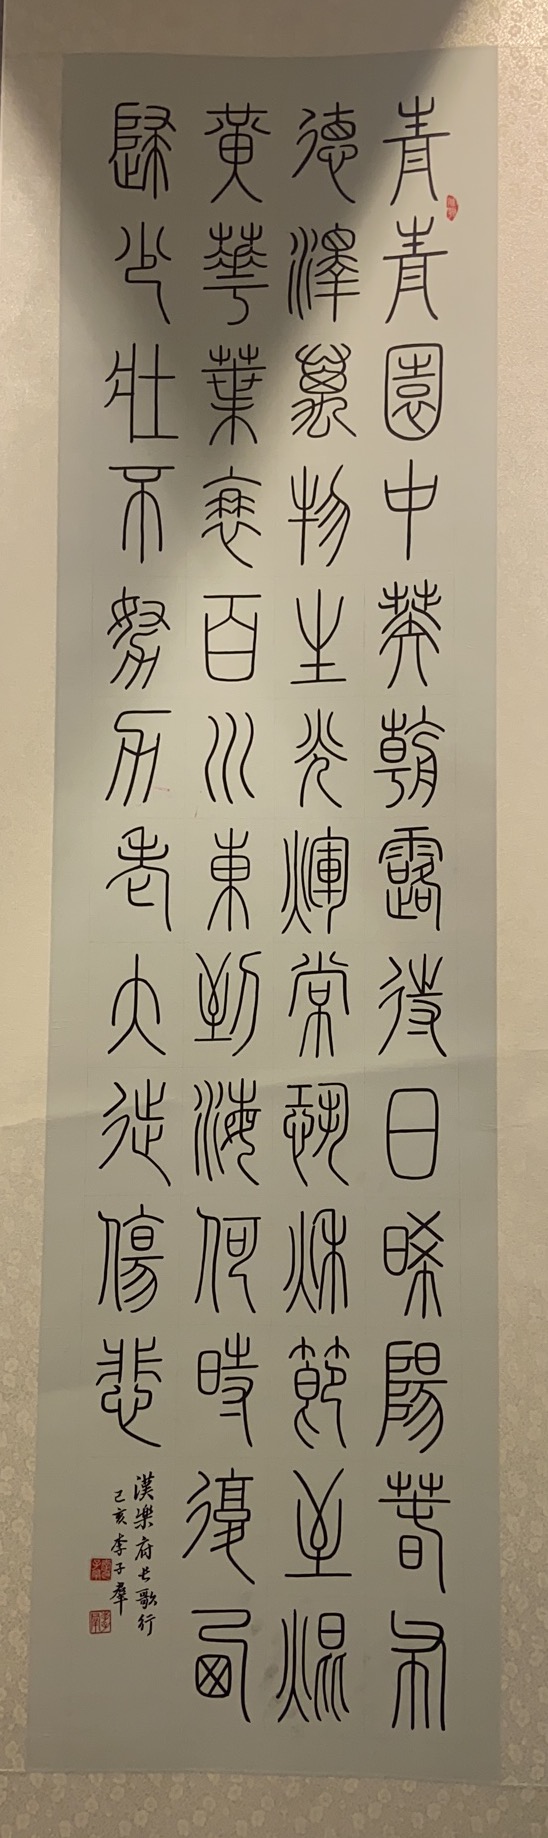 青青園中葵朝露待日晞陽春布
德澤萬物生光輝常恐秋節至焜
黃華葉衰百川東到海何時復西
歸少壯不努力老大徒傷悲
漢樂府長歌行
己亥李子羣